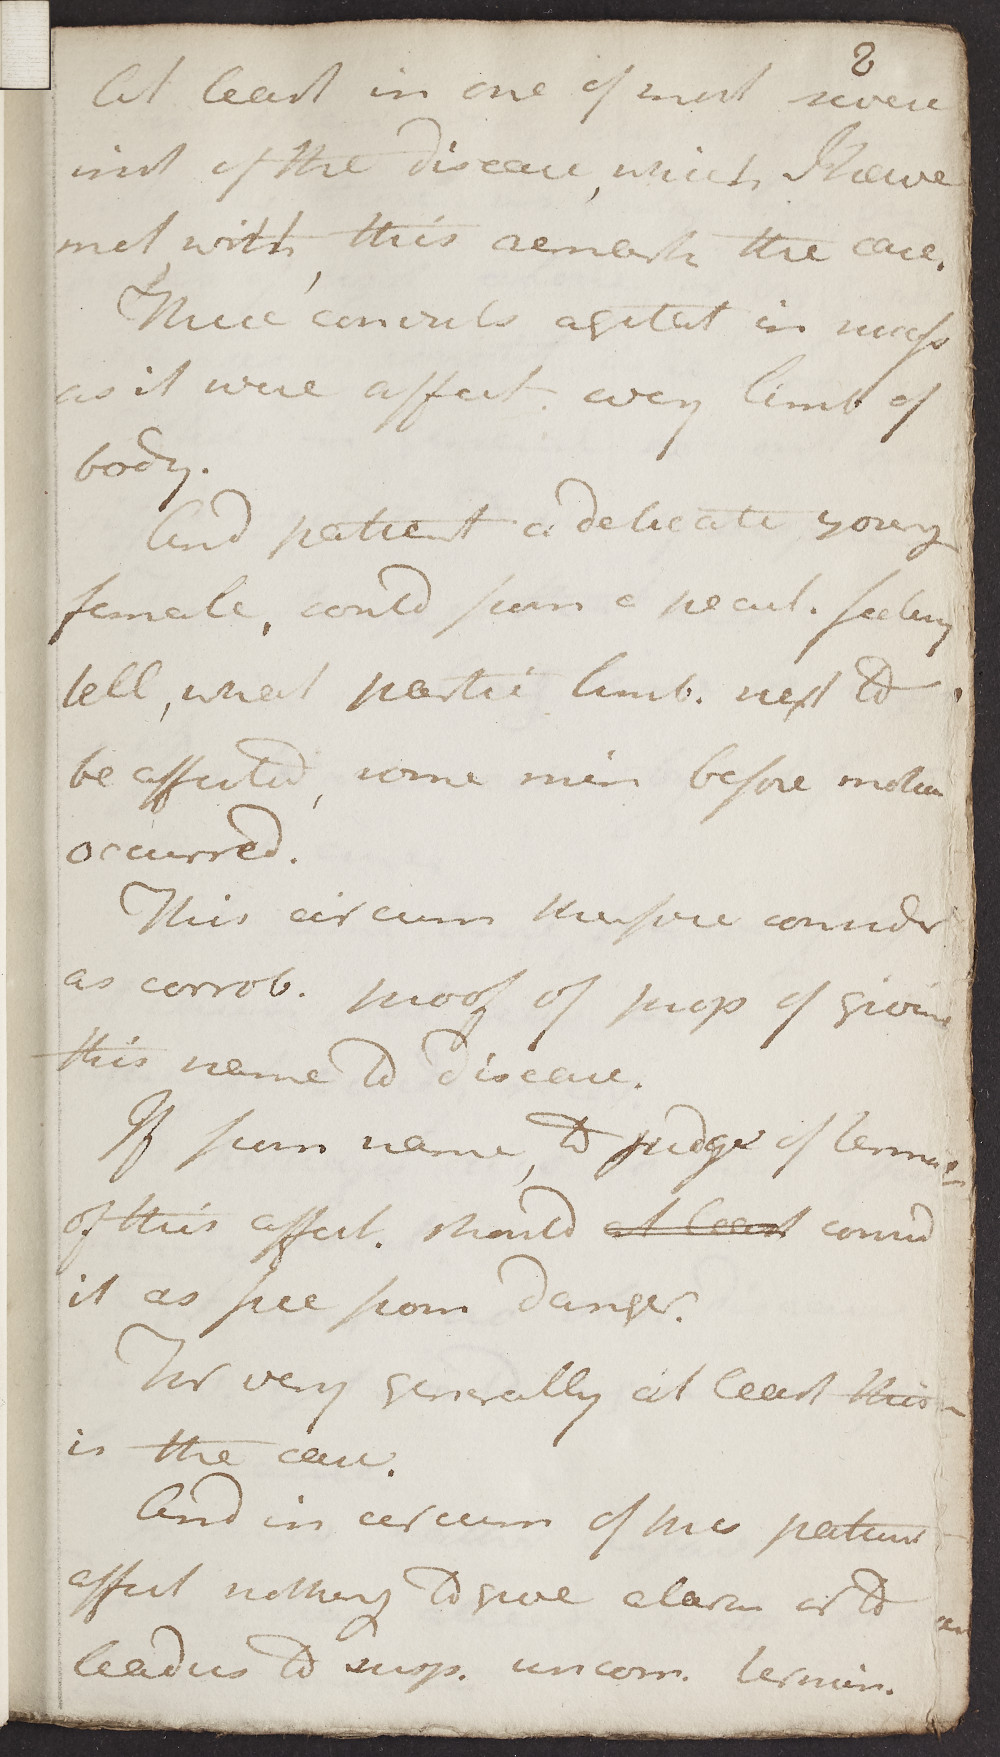 8
At least in one of most severe
inst of the disease, which I have
met with, this remark the case.
There convuls agitat in
as it were affect. every limb of
body.
And patient a delicate young
female, could from a pecul. feeling
tell, what partic limb. next to
be affected, some min before motion
occurred.
This circum therefore consider
as corrob. proof of prop of giving
this name to disease.
If from name, to judge of termin
of this affect. should at least consid
it as free from danger.
For very generally at least this
is the case.
And in circum of this patient
affect nothing to give alarm or to
lead us to susp. uncom. termin.